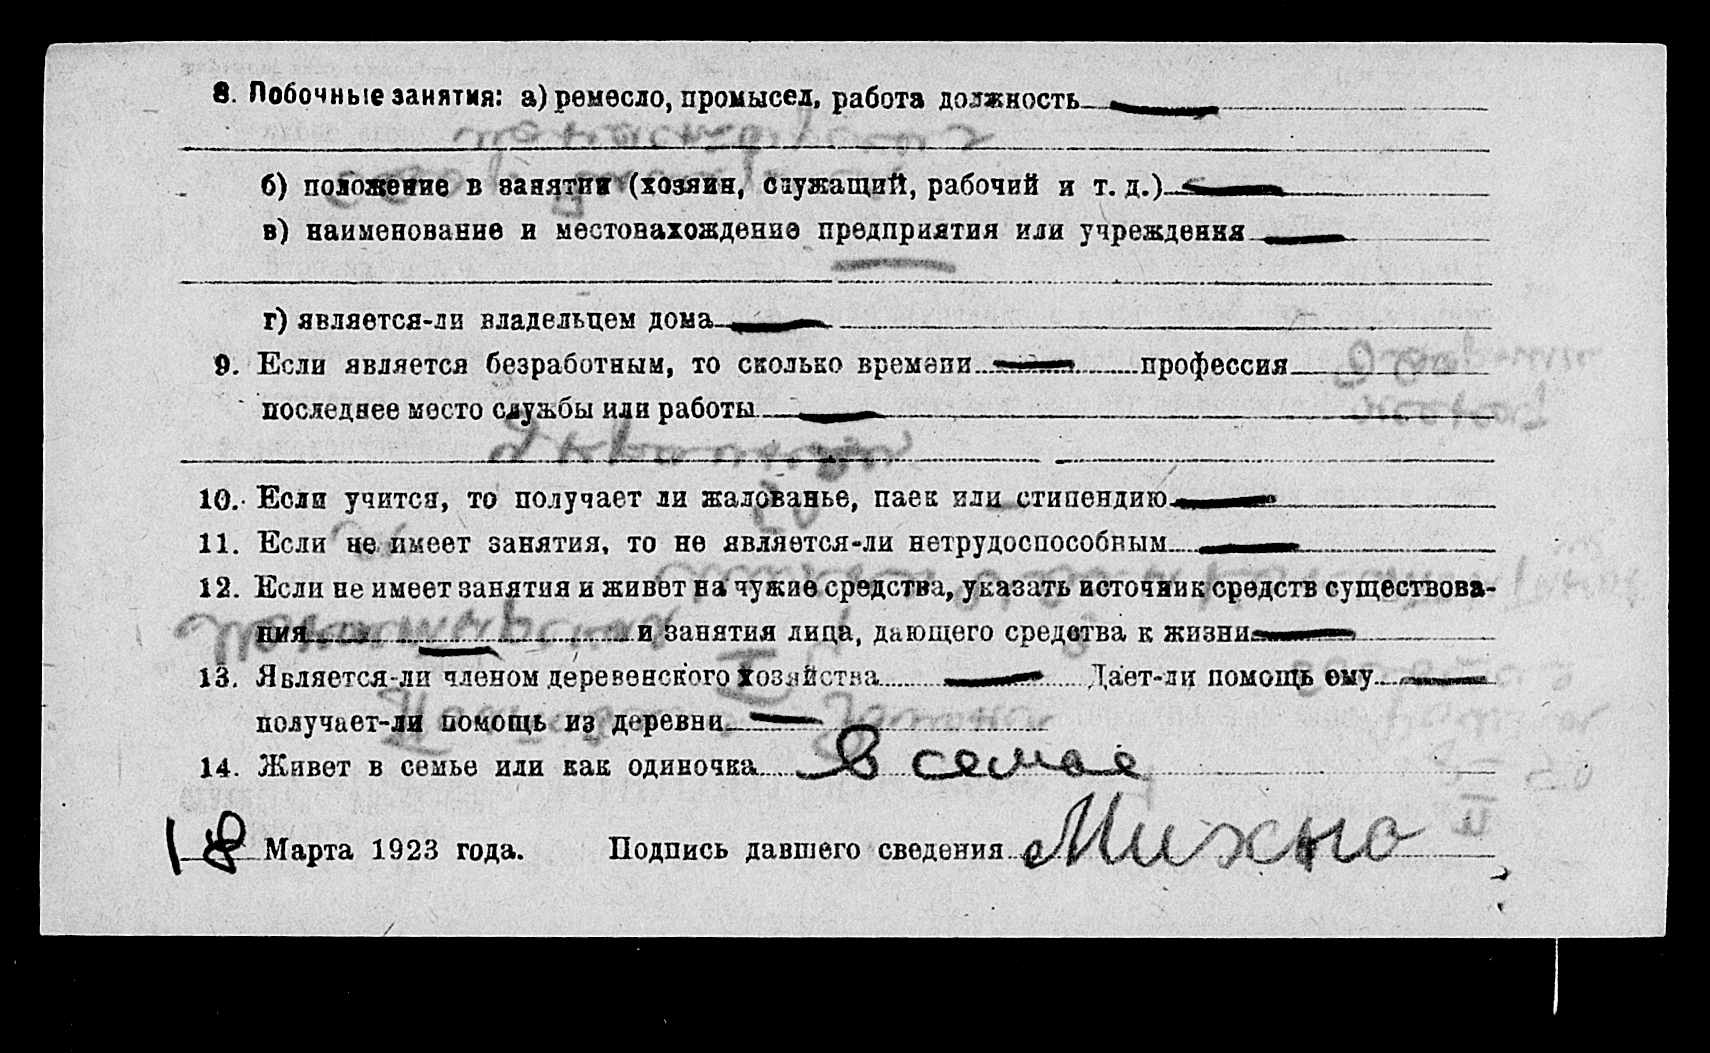 8. Побочные занятия: а) ремесло, промысел, работа должность —
б) положение в занятии (хозяин, служащий, рабочий и т. д.) —
в) наименование и местонахождение предприятия или учреждения —
г) является-ли владельцем дома —
9. Если является безработным, то сколько времени — профессия
последнее место службы или работы —
10. Если учится, то получает ли жалованье, паек или стипендию —
11. Если не имеет занятия, то не является-ли нетрудоспособным —
12. Если не имеет занятия и живет на чужие средства, указать источник средств существова-
ния — и занятия лица, дающего средства к жизни —
13. Является-ли членом деревенского хозяйства — Дает-ли помощь ему —
получает-ли помощь из деревни —
14. Живет в семье или как одиночка В семье
18 Марта 1923 года. Подпись давшего сведения Михно